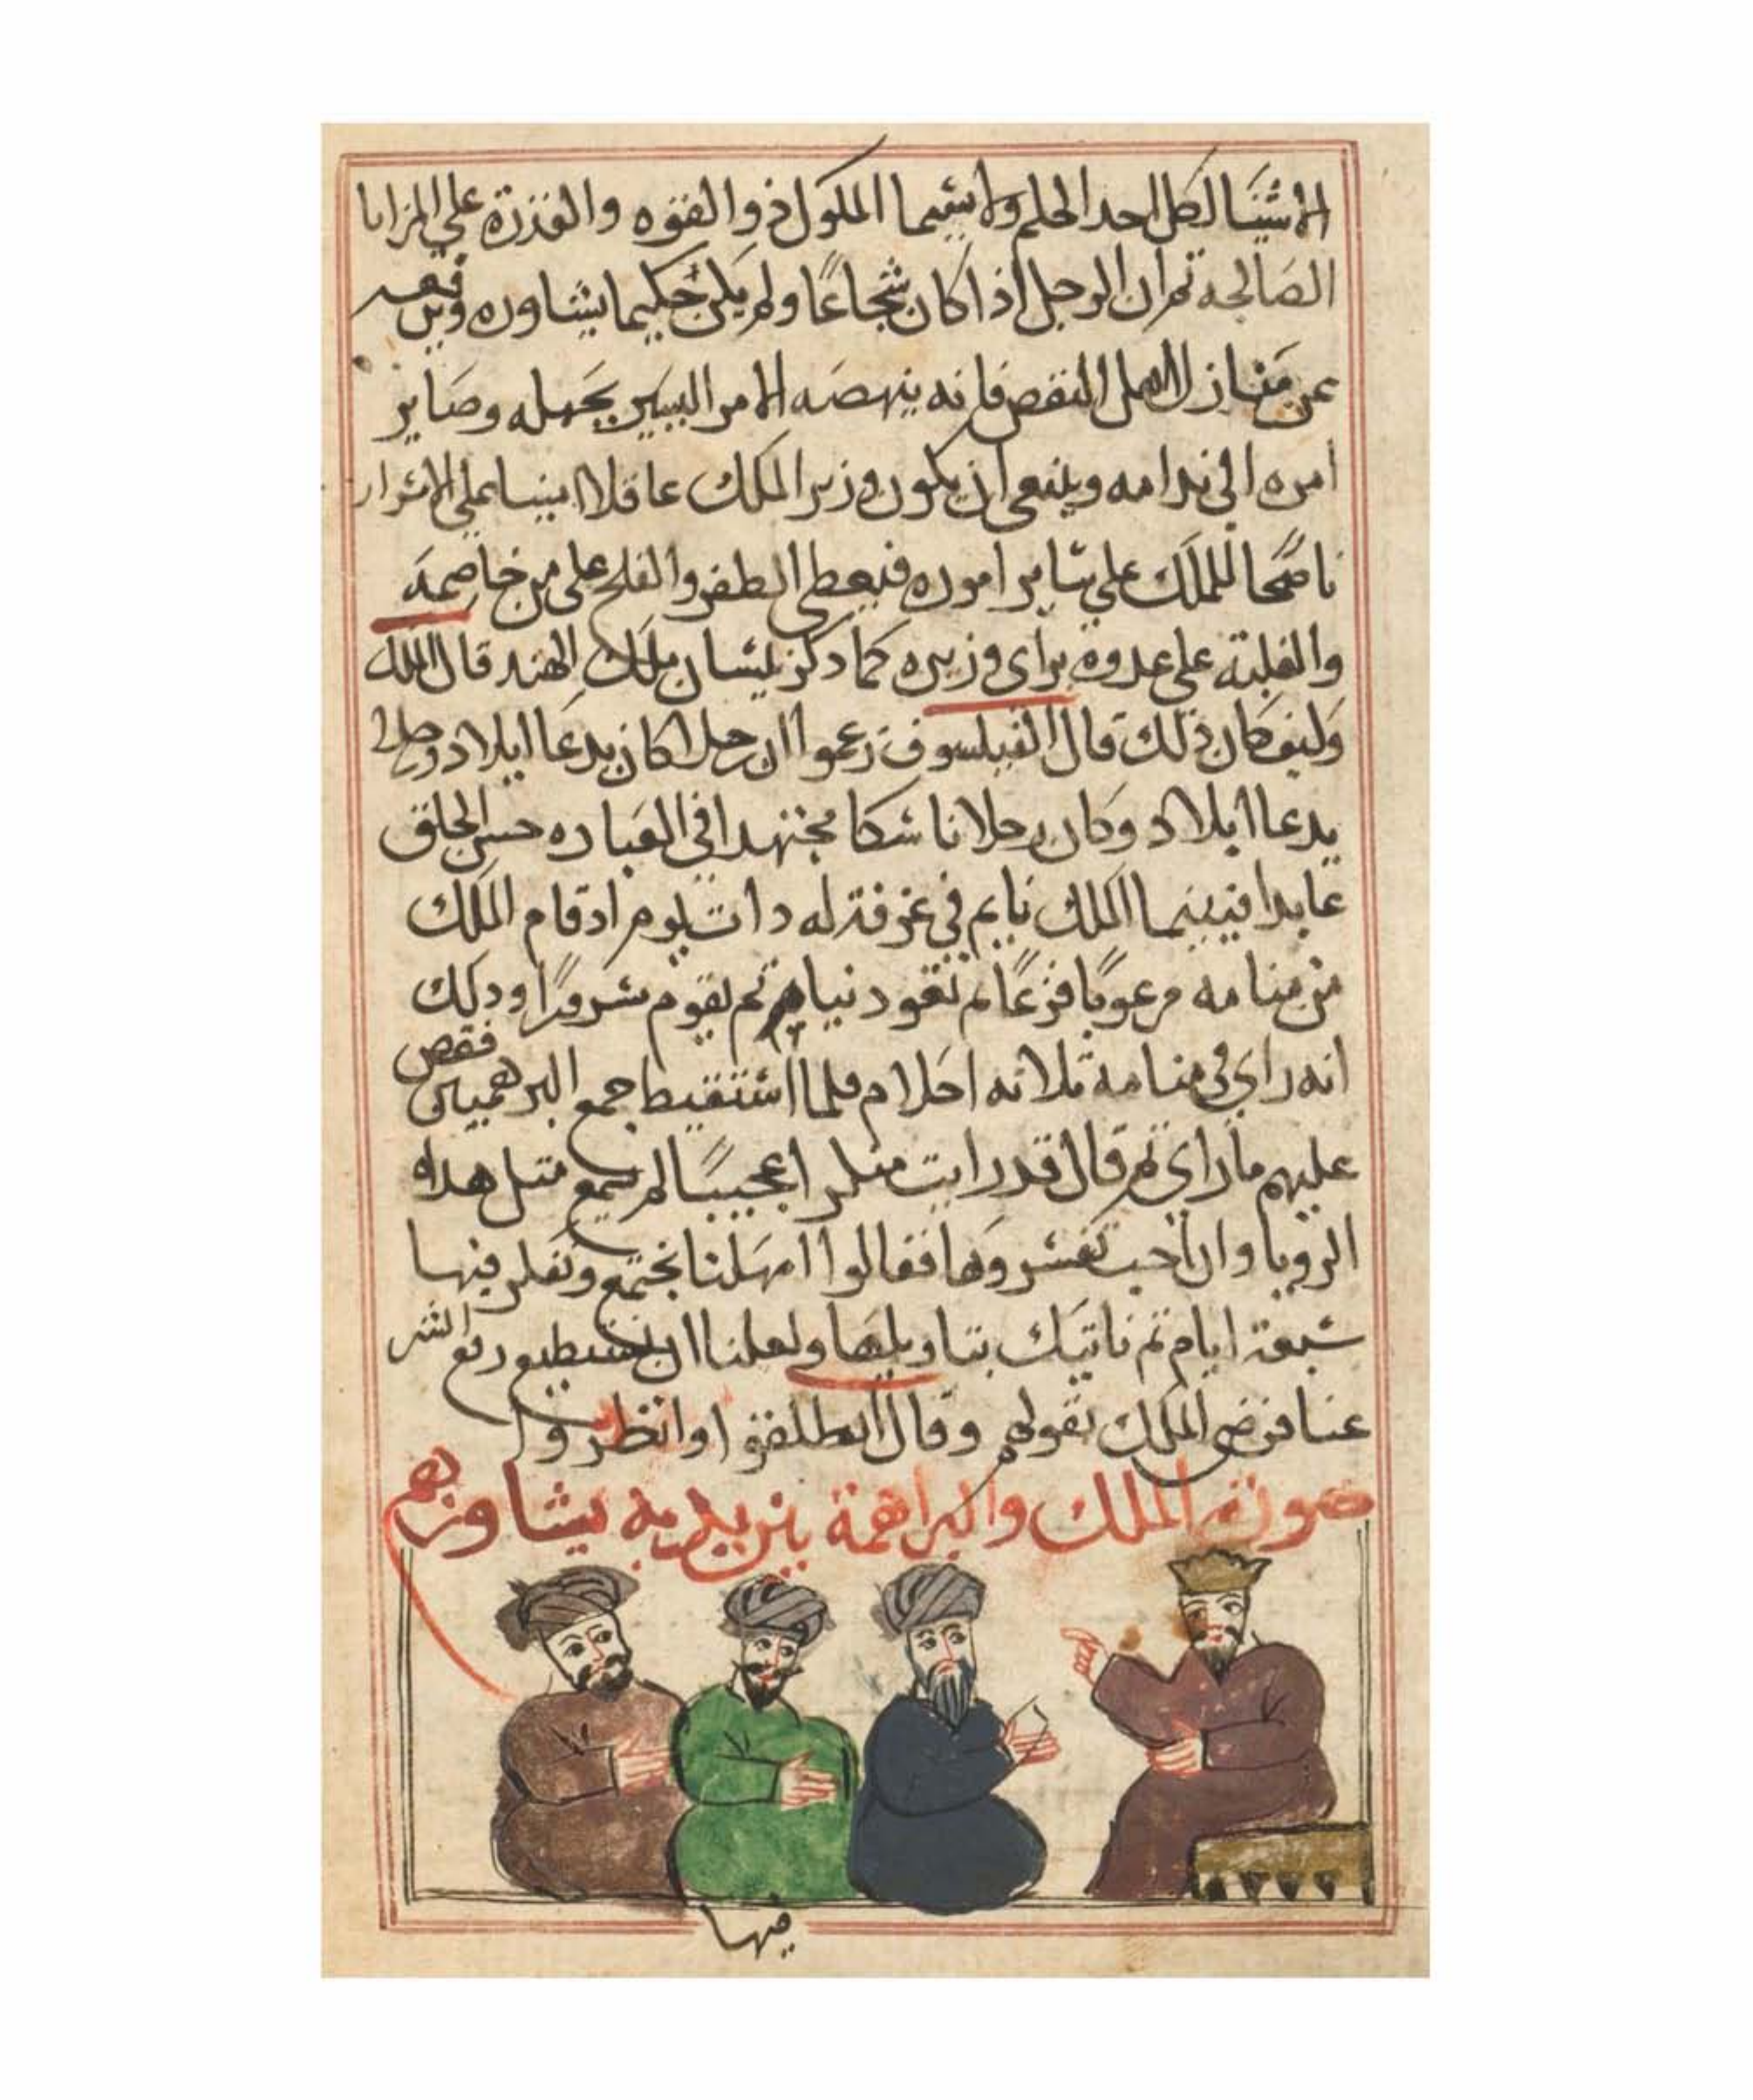 الاشيا لكل احد الحلم ولا سيما الملوك ذوا القوه والقدرة علي المزايا
الصالحه ثم ان الرجل اذا كان شجاعًا ولم يكن حكيما يشاوره
عن منازل اهل النقص فانه ينهضه الامر اليسير بجهله وصاير
امره الي ندامه وينبغي ان يكون وزير الملك عاقلا امينا علي الاسرار
ناصحا للملك علي ساير اموره فيعطي الظفر والفلح علي من خاصمه
والغلبة علي عدوه براي وزيره كما دكر بلسان ملك الهند قال الملك
وكيف كان ذلك قال الفيلسوف زعموا ان رجلا كان يدعا ايلاد
يدعا ايلاد وكان رجلا ناسكا مجتهدا في العباده حسن الخلق
عابدا فبينما الملك نايم في غرفة له دات يوم اد قام الملك
من منامه مرعوبًا فزعًا ثم تقود نيام ثم يقوم ودلك
انه راي في منامه ثلاثه احلام فلما استيقيط جمع البرهميين فقص
عليهم ما راي ثم قال قد رايت عجيبًا لم سمع متل هداه
الرويا وان احب تفسروها فقالوا امهلنا نجتمع ونفكر فيها
سبعة ايام ثم ناتيك بتاويلها ولعلنا ان نستطيع دفع الشر
عنا فرضي الملك بقولهم وقال انطلقوا وانظروا
صورة الملك والبراهمة بين يديه يشاورهم
فيها